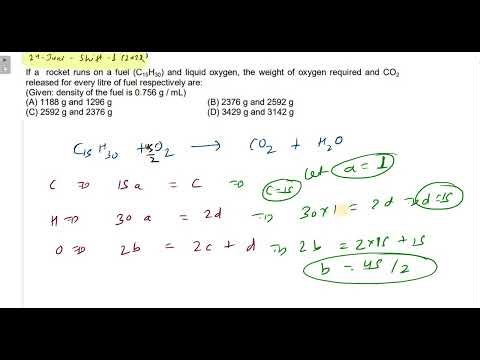 24-June-Shift-1 (2022)
If a rocket runs on a fuel (C₁₅H₃₀) and liquid oxygen, the weight of oxygen required and CO₂
released for every litre of fuel respectively are:
(Given: density of the fuel is 0.756 g / mL)
(A) 1188 g and 1296 g (B) 2376 g and 2592 g
(C) 2592 g and 2376 g (D) 3429 g and 3142 g
C₁₅H₃₀ + 45/2 O₂ → CO₂ + H₂O
let a = 1
C ⇒ 15a = C ⇒ C=15
H ⇒ 30a = 2d ⇒ 30×1 = 2d ⇒ d=15
O ⇒ 2b = 2c + d ⇒ 2b = 2×15 + 15
b = 45/2